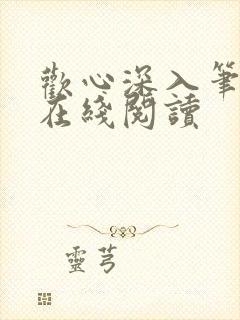 歡心深入筆
在綫閱讀
靈芎